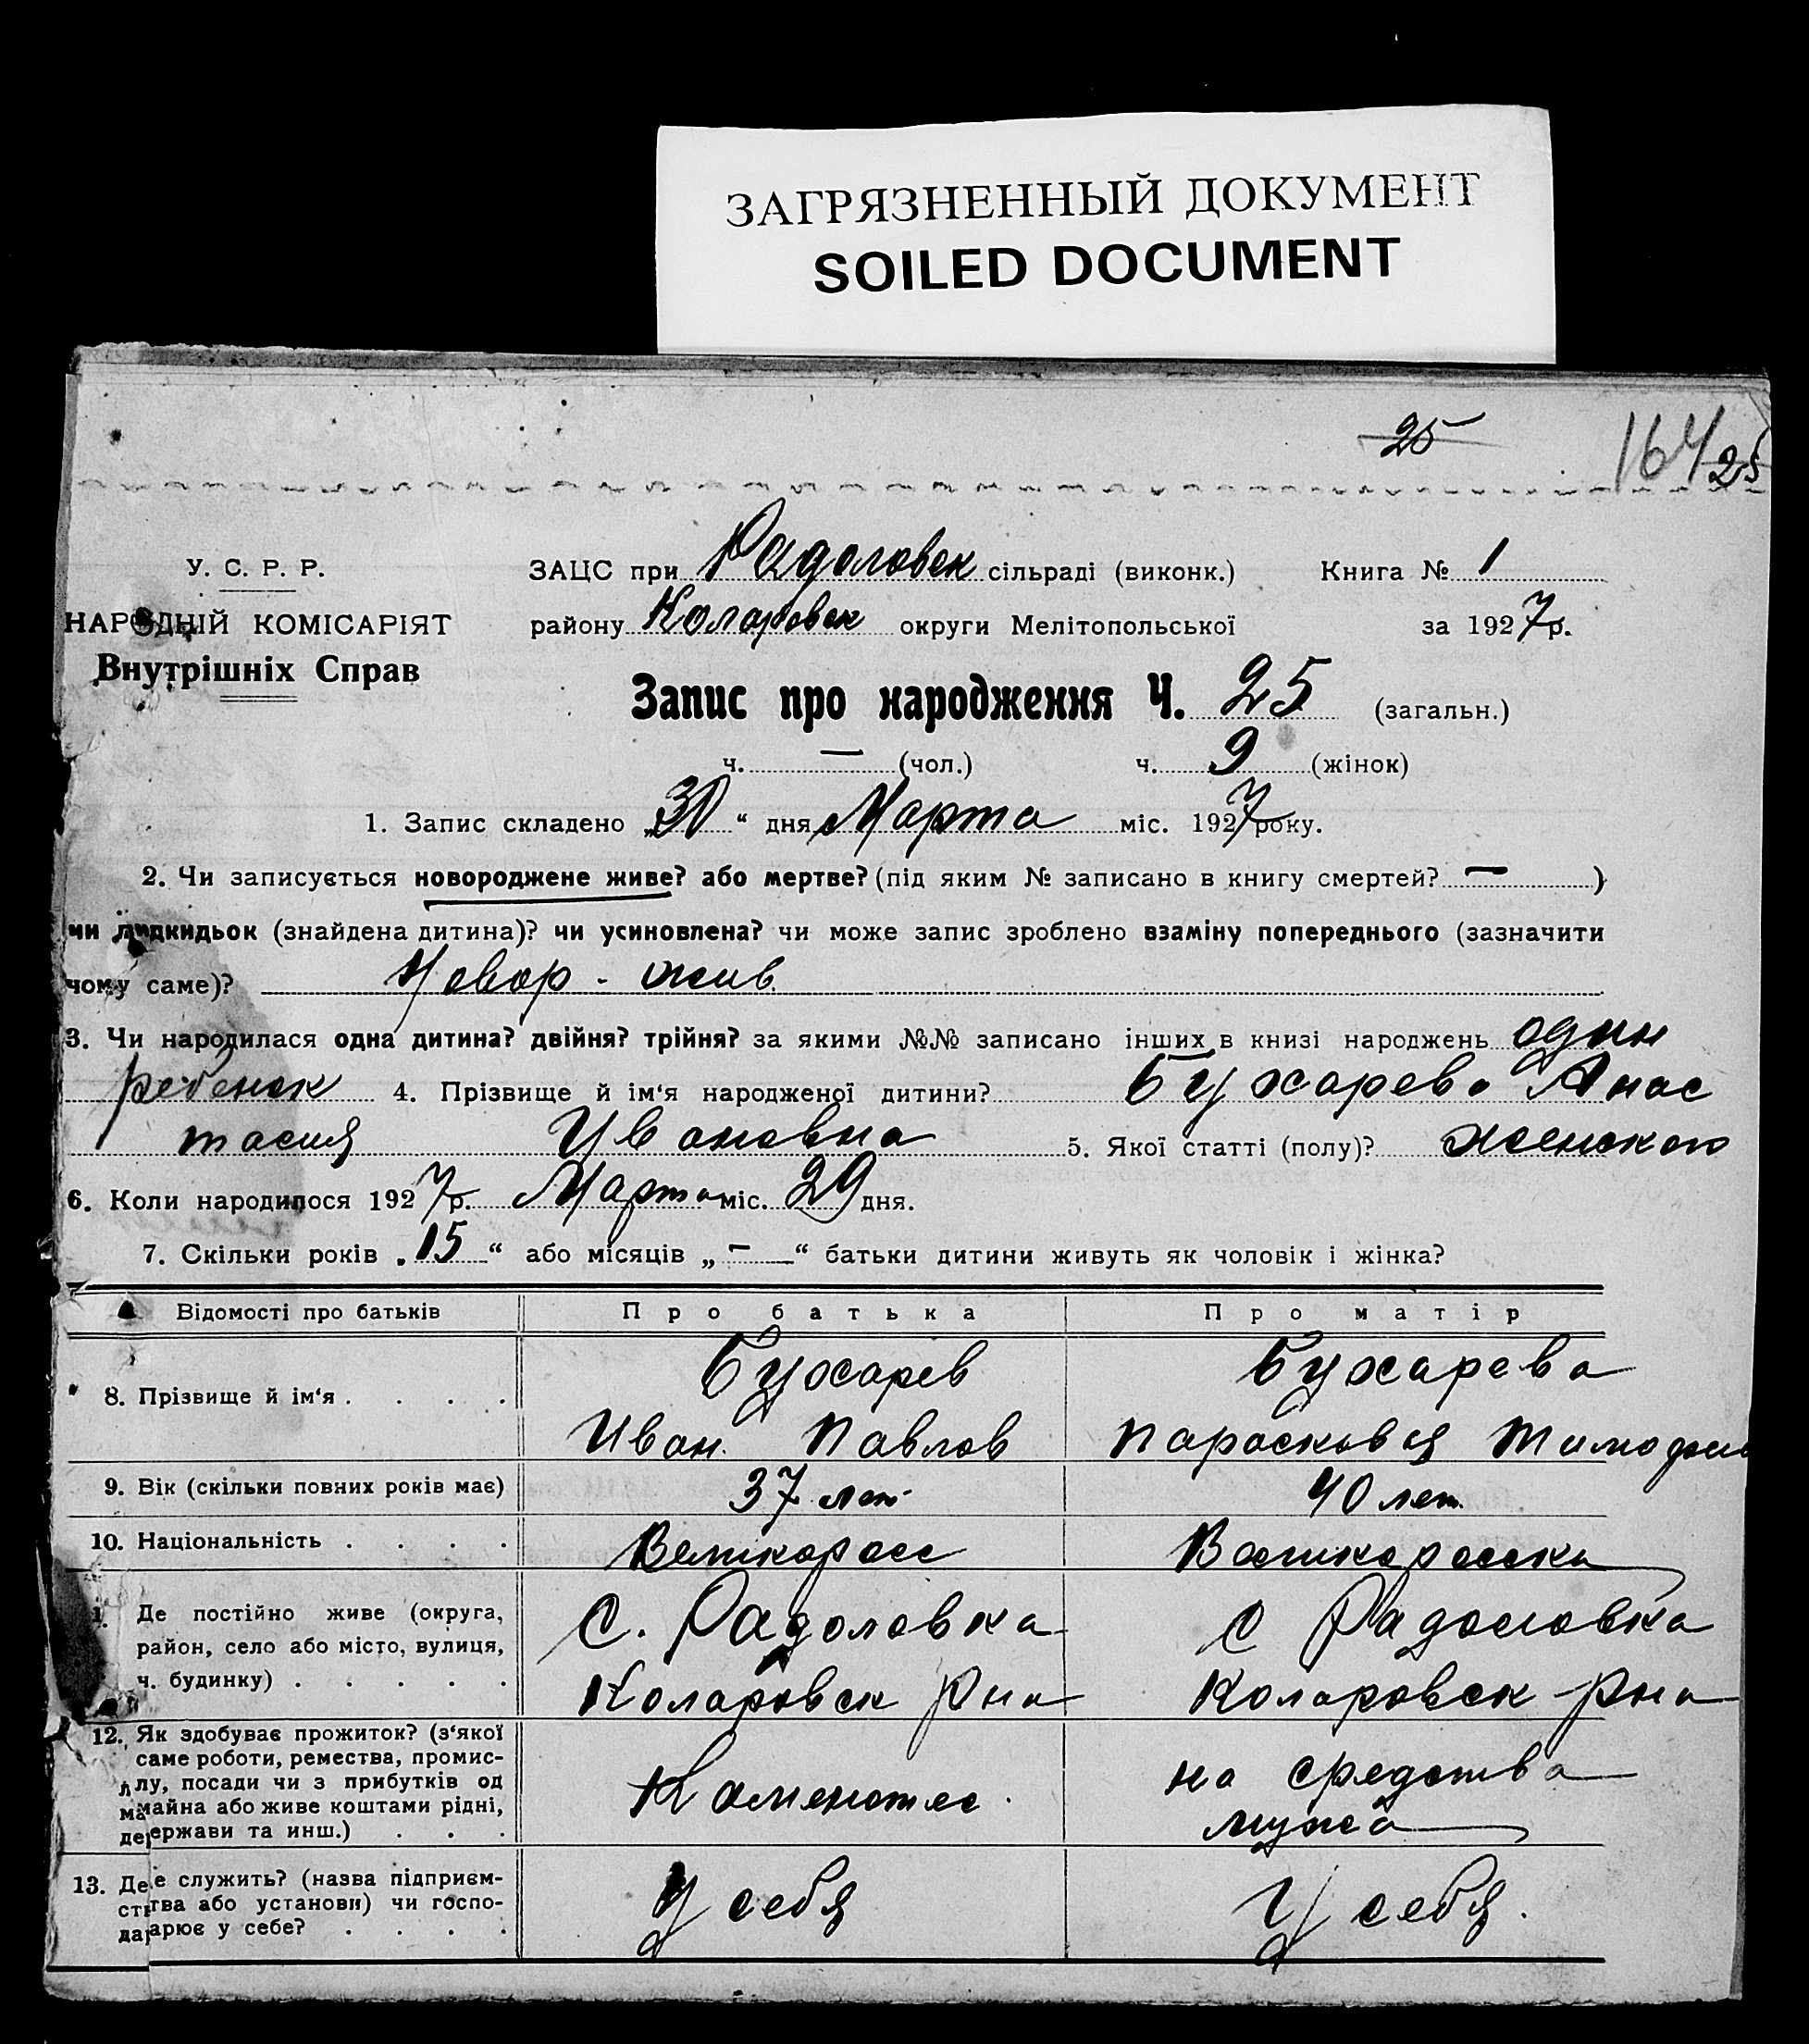 ЗАГРЯЗНЕННЫЙ ДОКУМЕНТ
SOILED DOCUMENT
25
164 25
У. С. Р. Р.
НАРОДНІЙ КОМІСАРІЯТ
Внутрішніх Справ
ЗАЦС при Радоловск сільраді (виконк.) Книга № 1
району Коларовск округи Мелітопольської за 1927 р.
Запис про народження Ч. 25 (загальн.)
ч. — (чол.) ч. 9 (жінок)
1. Запис складено „30“ дня Марта міс. 1927 року.
2. Чи записується новороджене живе? або мертве? (під яким № записано в книгу смертей? — )
чи підкидьок (знайдена дитина)? чи усиновлена? чи може запис зроблено взаміну попереднього (зазначити
чому саме)? Новор - жив.
3. Чи народилася одна дитина? двійня? трійня? за якими №№ записано інших в книзі народжень один
ребенок 4. Прізвище й ім‘я народженої дитини? Бухарева Анас
тасия Ивановна 5. Якої статті (полу)? женского
6. Коли народилося 1927 р. Марта міс. 29 дня.
7. Скільки років „15“ або місяців „—“ батьки дитини живуть як чоловік і жінка?
Відомості про батьків Про батька Про матір
8. Прізвище й ім‘я . . . . Бухарев Бухарева
Иван Павлов Парасковья Тимофеи
9. Вік (скільки повних років має) 37 лет 40 лет.
10. Національність . . . . Великоросс Великоросска
Де постійно живе (округа,
район, село або місто, вулиця,
ч. будинку) . . . . .
С. Радоловка С Радоловка
Коларовск рна Коларовск рна
12. Як здобуває прожиток? (з‘якої
саме роботи, ремества, промис-
лу, посади чи з прибутків од
майна або живе коштами рідні,
держави та инш.) . . .
Каменотес. на средства
мужа
13. Де служить? (назва підприєм-
ства або установи) чи госпо-
дарює у себе? . . . .
У себя У себя.